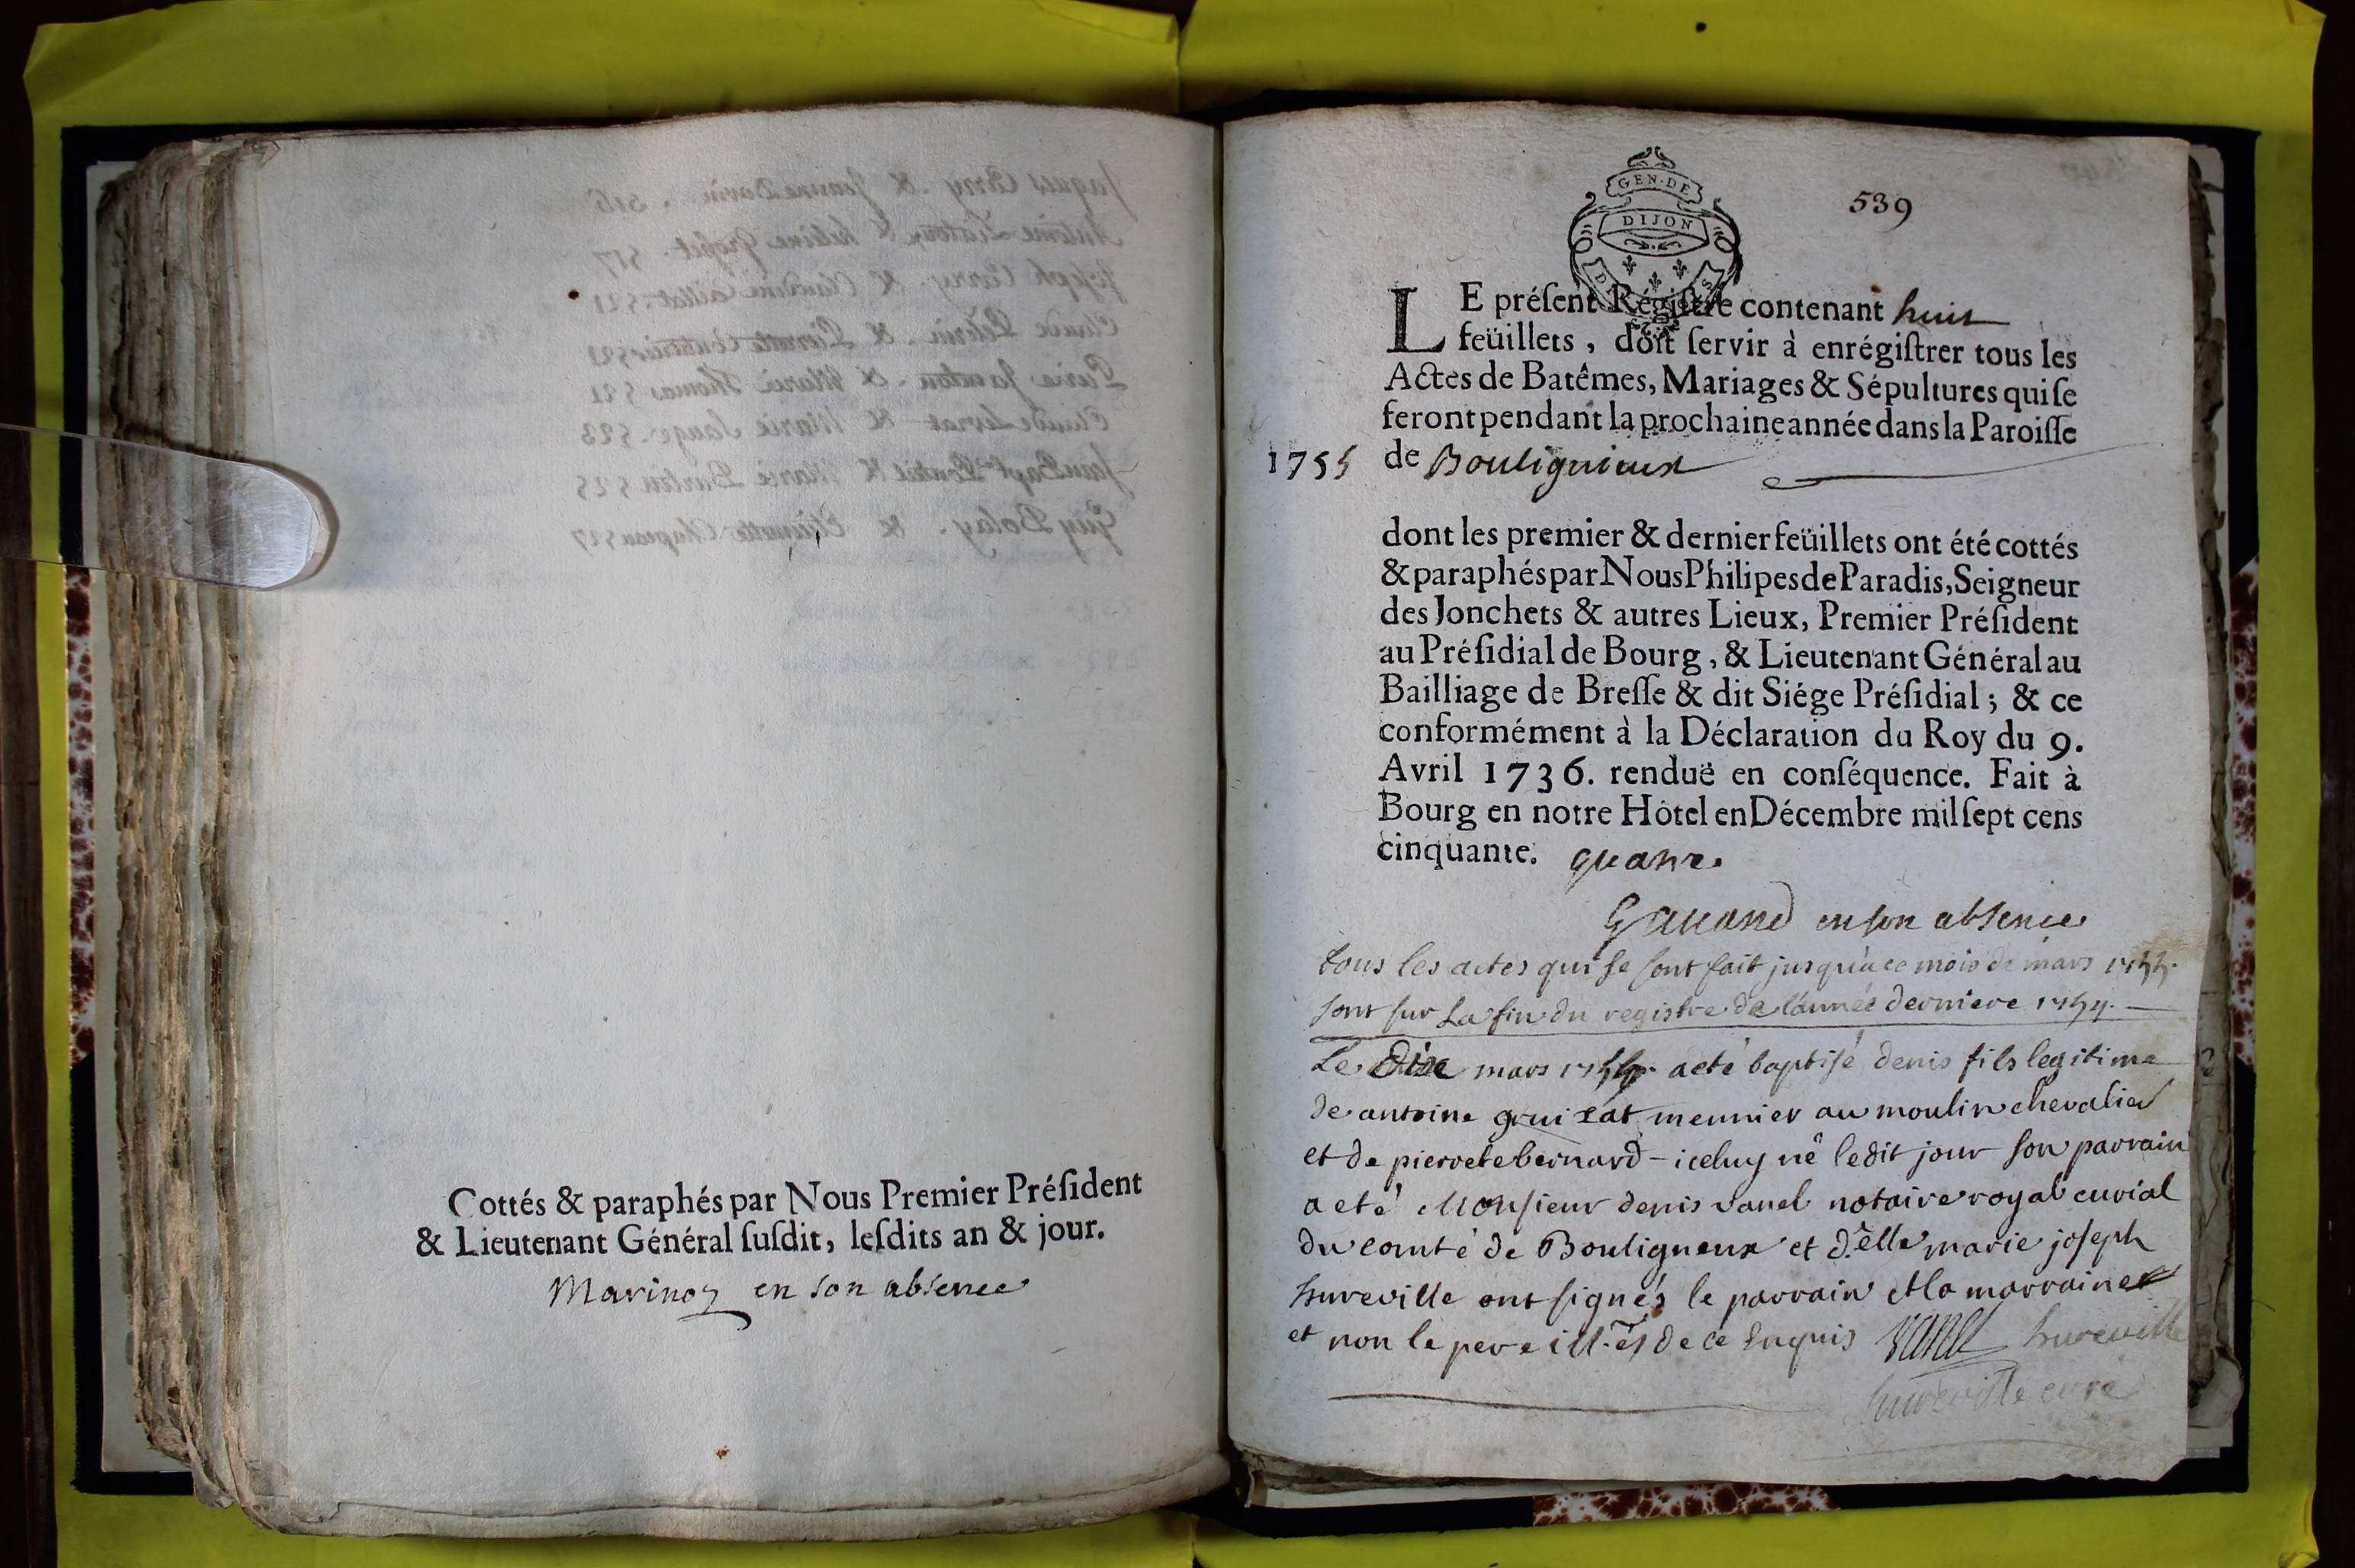 Cottés & paraphés par Nous Premier Préſident
& Lieutenant Général ſuſdit, leſdits an & jour.
en son absence
GEN·DE
DIJON
539
LE préſent Régiſtre contenant huit
feüillets, doit ſervir à enrégiſtrer tous les
Actes de Batêmes, Mariages & Sépultures qui ſe
feront pendant la prochaine année dans la Paroiſſe
1755 de Boulignieux
dont les premier & dernier feüillets ont été cottés
& paraphés par Nous Philipes de Paradis, Seigneur
des Jonchets & autres Lieux, Premier Préſident
au Préſidial de Bourg, & Lieutenant Général au
Bailliage de Breſſe & dit Siége Préſidial; & ce
conformément à la Déclaration du Roy du 9.
Avril 1736. renduë en conſéquence. Fait à
Bourg en notre Hôtel en Décembre mil ſept cens
cinquante. quatre.
en son absence
tous les actes qui se sont fait jusqu'a ce mois de mars 1755.
sont sur la fin du registre de l'année derniere 1754.
Le dixe mars 1755. a eté baptisé denis fils legitime
de antoine meunier au moulin chevalier
et de pierrete bernard - iceluy né ledit jour son parrain
a eté Monsieur denis vanel notaire royal curial
du comté de Bouligneux et d.elle marie joseph
hureville ont signés le parrain et la marraine
et non le pere ill.és de ce enquis vanel hureville
hureville curé